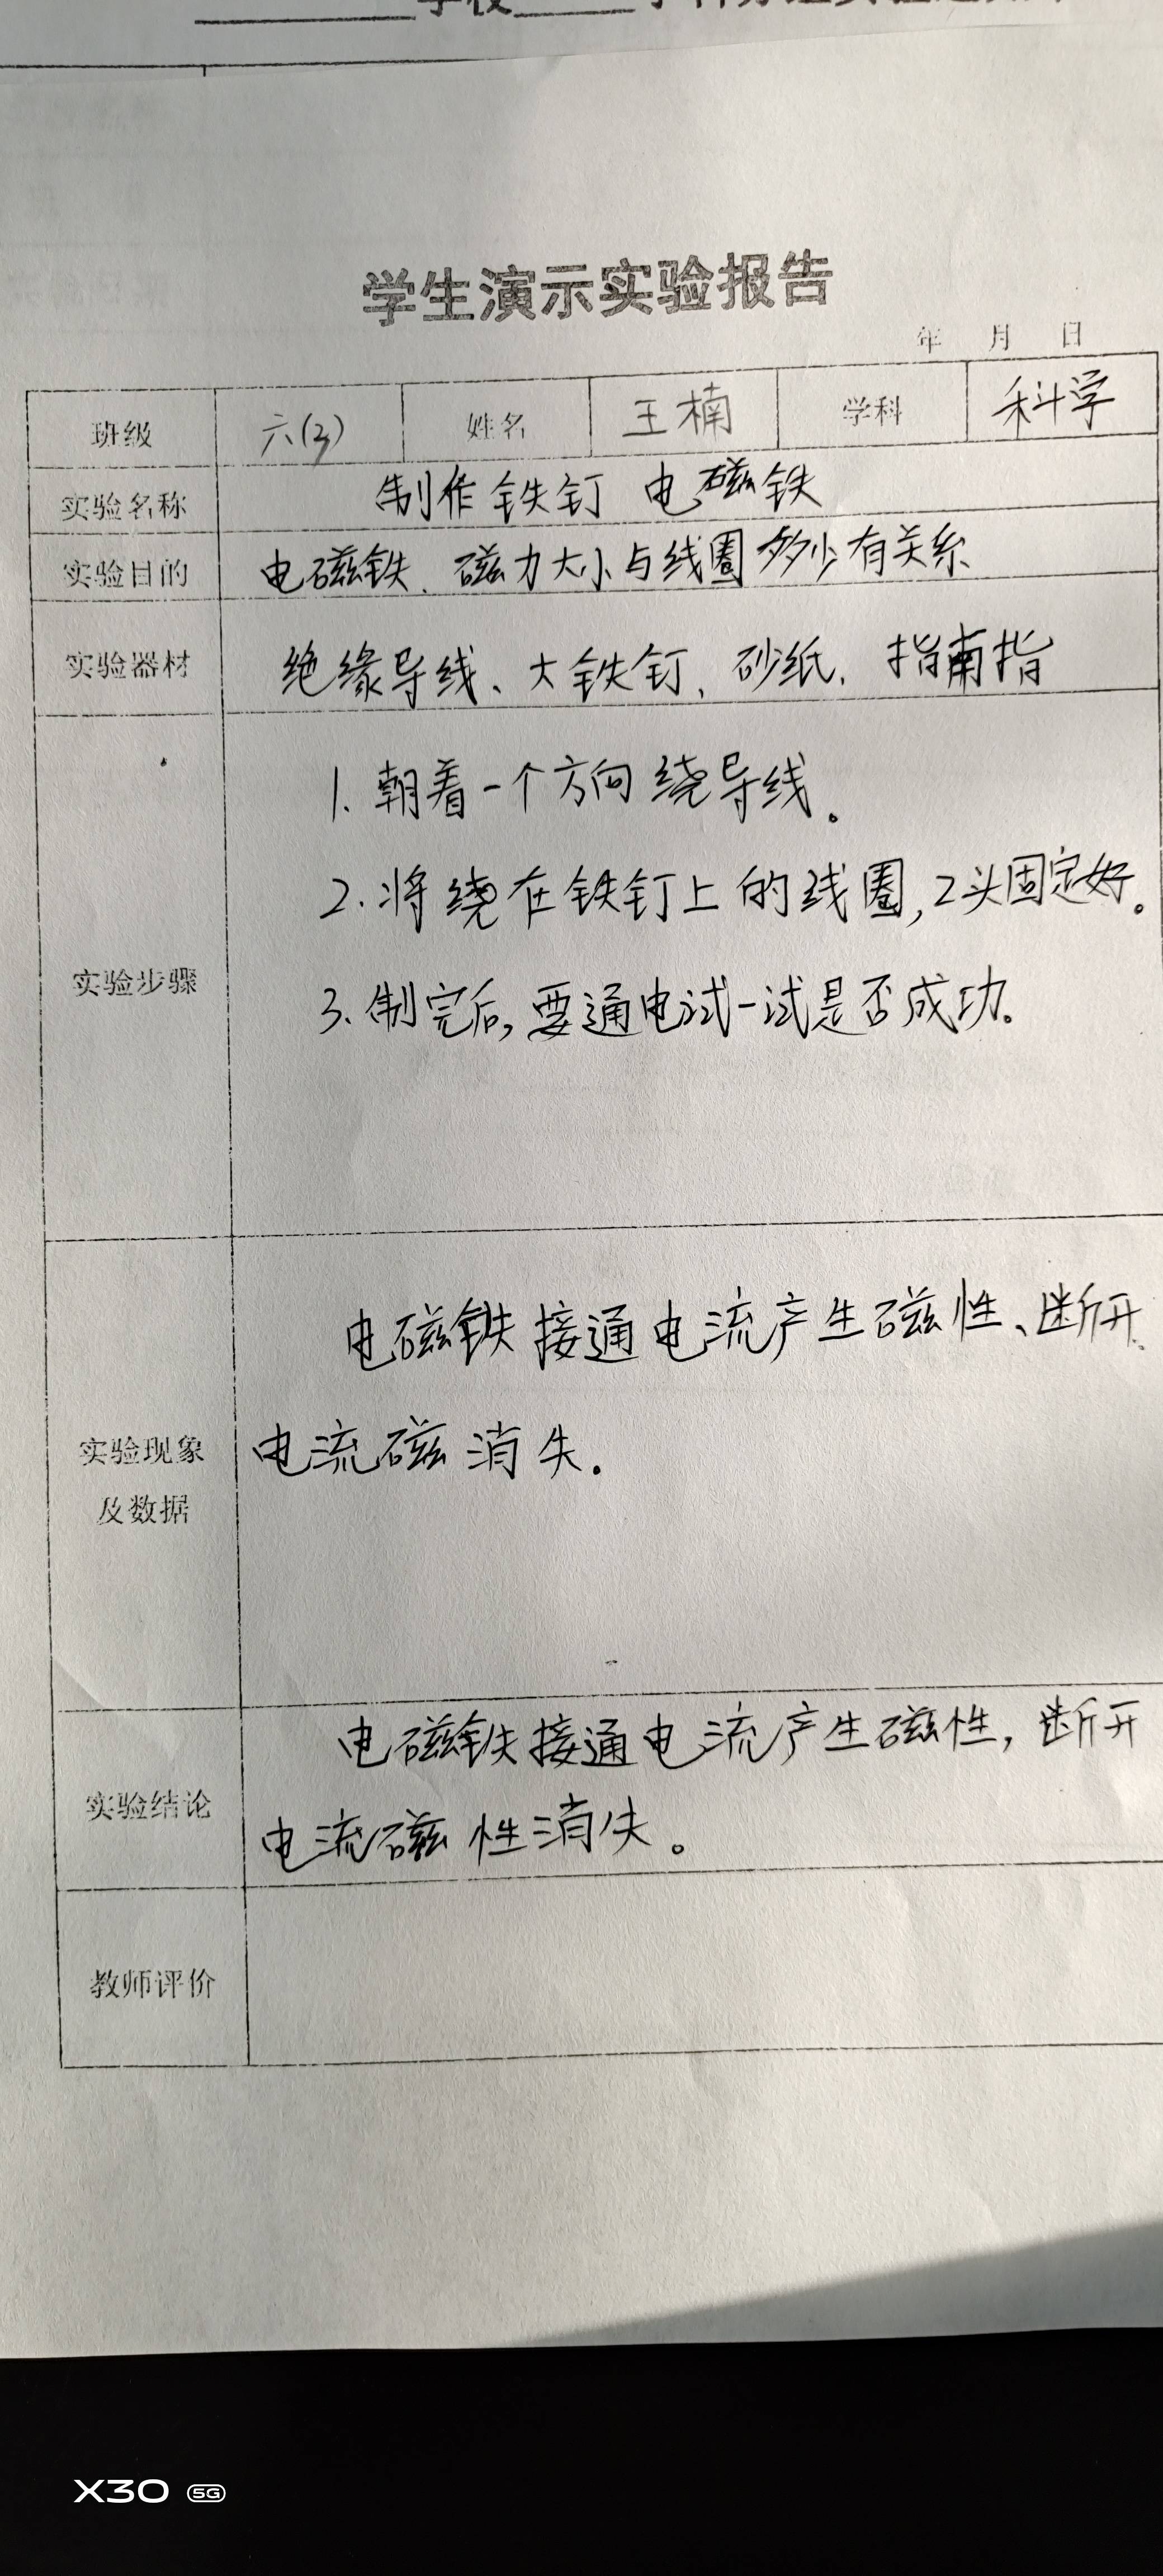 学生演示实验报告
年 月 日
班级 六(3) 姓名 王楠 学科 科学
实验名称 制作铁钉 电磁铁
实验目的 电磁铁、磁力大小与线圈多少有关系
实验器材 绝缘导线、大铁钉、砂纸、指南指
实验步骤
1. 朝着一个方向绕导线。
2. 将绕在铁钉上的线圈,2头固定好。
3. 制完后,要通电试一试是否成功。
实验现象
及数据
电磁铁接通电流产生磁性、断开
电流磁消失.
实验结论
电磁铁接通电流产生磁性,断开
电流磁性消失。
教师评价
X30 5G